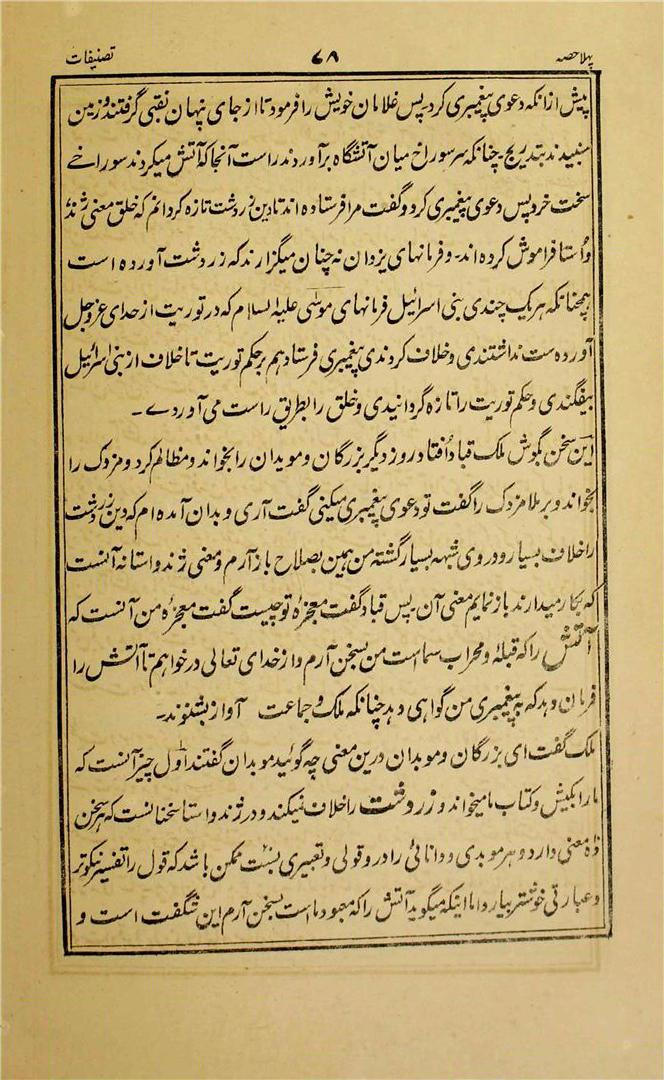 پہلا حصہ ۶۸ تصنیفات
پیش ازانکه دعوی پیغمبری کرد۔پس غلامان خویش را فرمود تا از جای پنهان نقبی گرفتند و زمین
می‌بیدند بتدریج۔چنانکه سر سوراخ میان آتشگاه برآوردند راست آنجا که آتش میکردند سوراخے
سخت خرد پس دعوی پیغمبری کرد و گفت مرا فرستاده اند تا دین زردشت تازه گردانم که خلق معنی ژند
و اُستا فراموش کرده اند۔ و فرمانهای یزدان نه چنان میگزارند که زردشت آورده است
ہمچنانکه هر یک چندی بنی اسرائیل فرمانهای موسٰی علیه السلام که در توریت از خدای عزوجل
آورده ست نداشتندی و خلاف کردندی پیغمبری فرستادهم برحکم توریت تا خلاف از بنی اسرائیل
بیفگندی و حکم توریت را تازه گردانیدی و خلق را بطریق راست می آوردے۔
این سخن بگوش ملک قباد اُفتاد روز دیگر بزرگان و موبدان را بخواند و مظالم کرد و مزدک را
بخواند و برملا مزدک را گفت تو دعوی پیغمبری میکنی گفت آری و بدان آمده ام که دین زردشت
را خلاف بسیار و دروی شبهه بسیار گشته من همین بصلاح باز آرم و معنی ژند و استا نه آنست
که بکار میدارند باز نمایم معنی آن۔ پس قباد گفت معجزۂ تو چیست گفت معجزۂ من آنست که
آتش را که قبله و محراب شماست من بسخن آرم و از خدای تعالی درخواهم تا آتش را
فرمان دهد که به پیغمبری من گواهی دهد چنانکه ملک و جماعت آواز بشنوند۔
ملک گفت ای بزرگان و موبدان درین معنی چه گوئید موبدان گفتند اول چیز آنست که
مارا بکیش و کتاب ما میخواند و زردشت را خلاف نمیکند و در ژند و استا سخنانست که هر سخن
دٔه معنی دارد و هر موبدی و دانائی را درو قولی و تعبیری ہست ممکن باشد که قول را تفسیر نیکوتر
و عبارتی خوشتر بیارد اما اینکه میگوید آتش را که معبود ماست بسخن آرم این شگفت است و